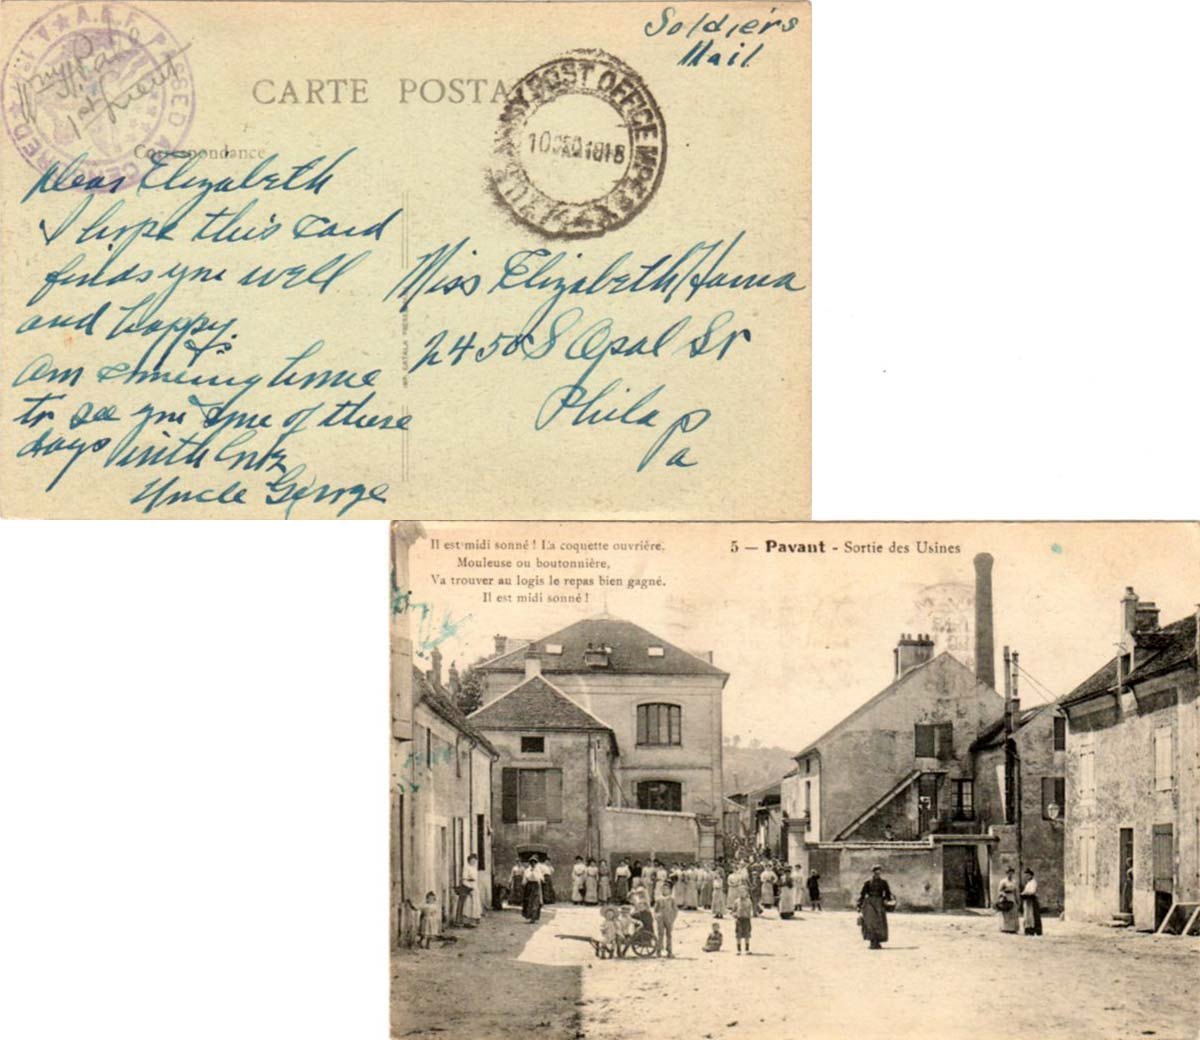 A.E.F. PASSED AS CENSORED
1st Lieut
Soldiers
Mail
CARTE POSTA
POST OFFICE
10 DEC 1918
Correspondance
Dear Elizabeth
I hope this card
finds you well
and happy.
am coming home
to see you one of these
days with love
Uncle George
IMP. CATALA PARIS
Miss Elizabeth Hanna
2450 S Opal St
Phila
Pa
Il est midi sonné ! La coquette ouvrière,
Mouleuse ou boutonnière,
Va trouver au logis le repas bien gagné.
Il est midi sonné !
5 — Pavant - Sortie des Usines